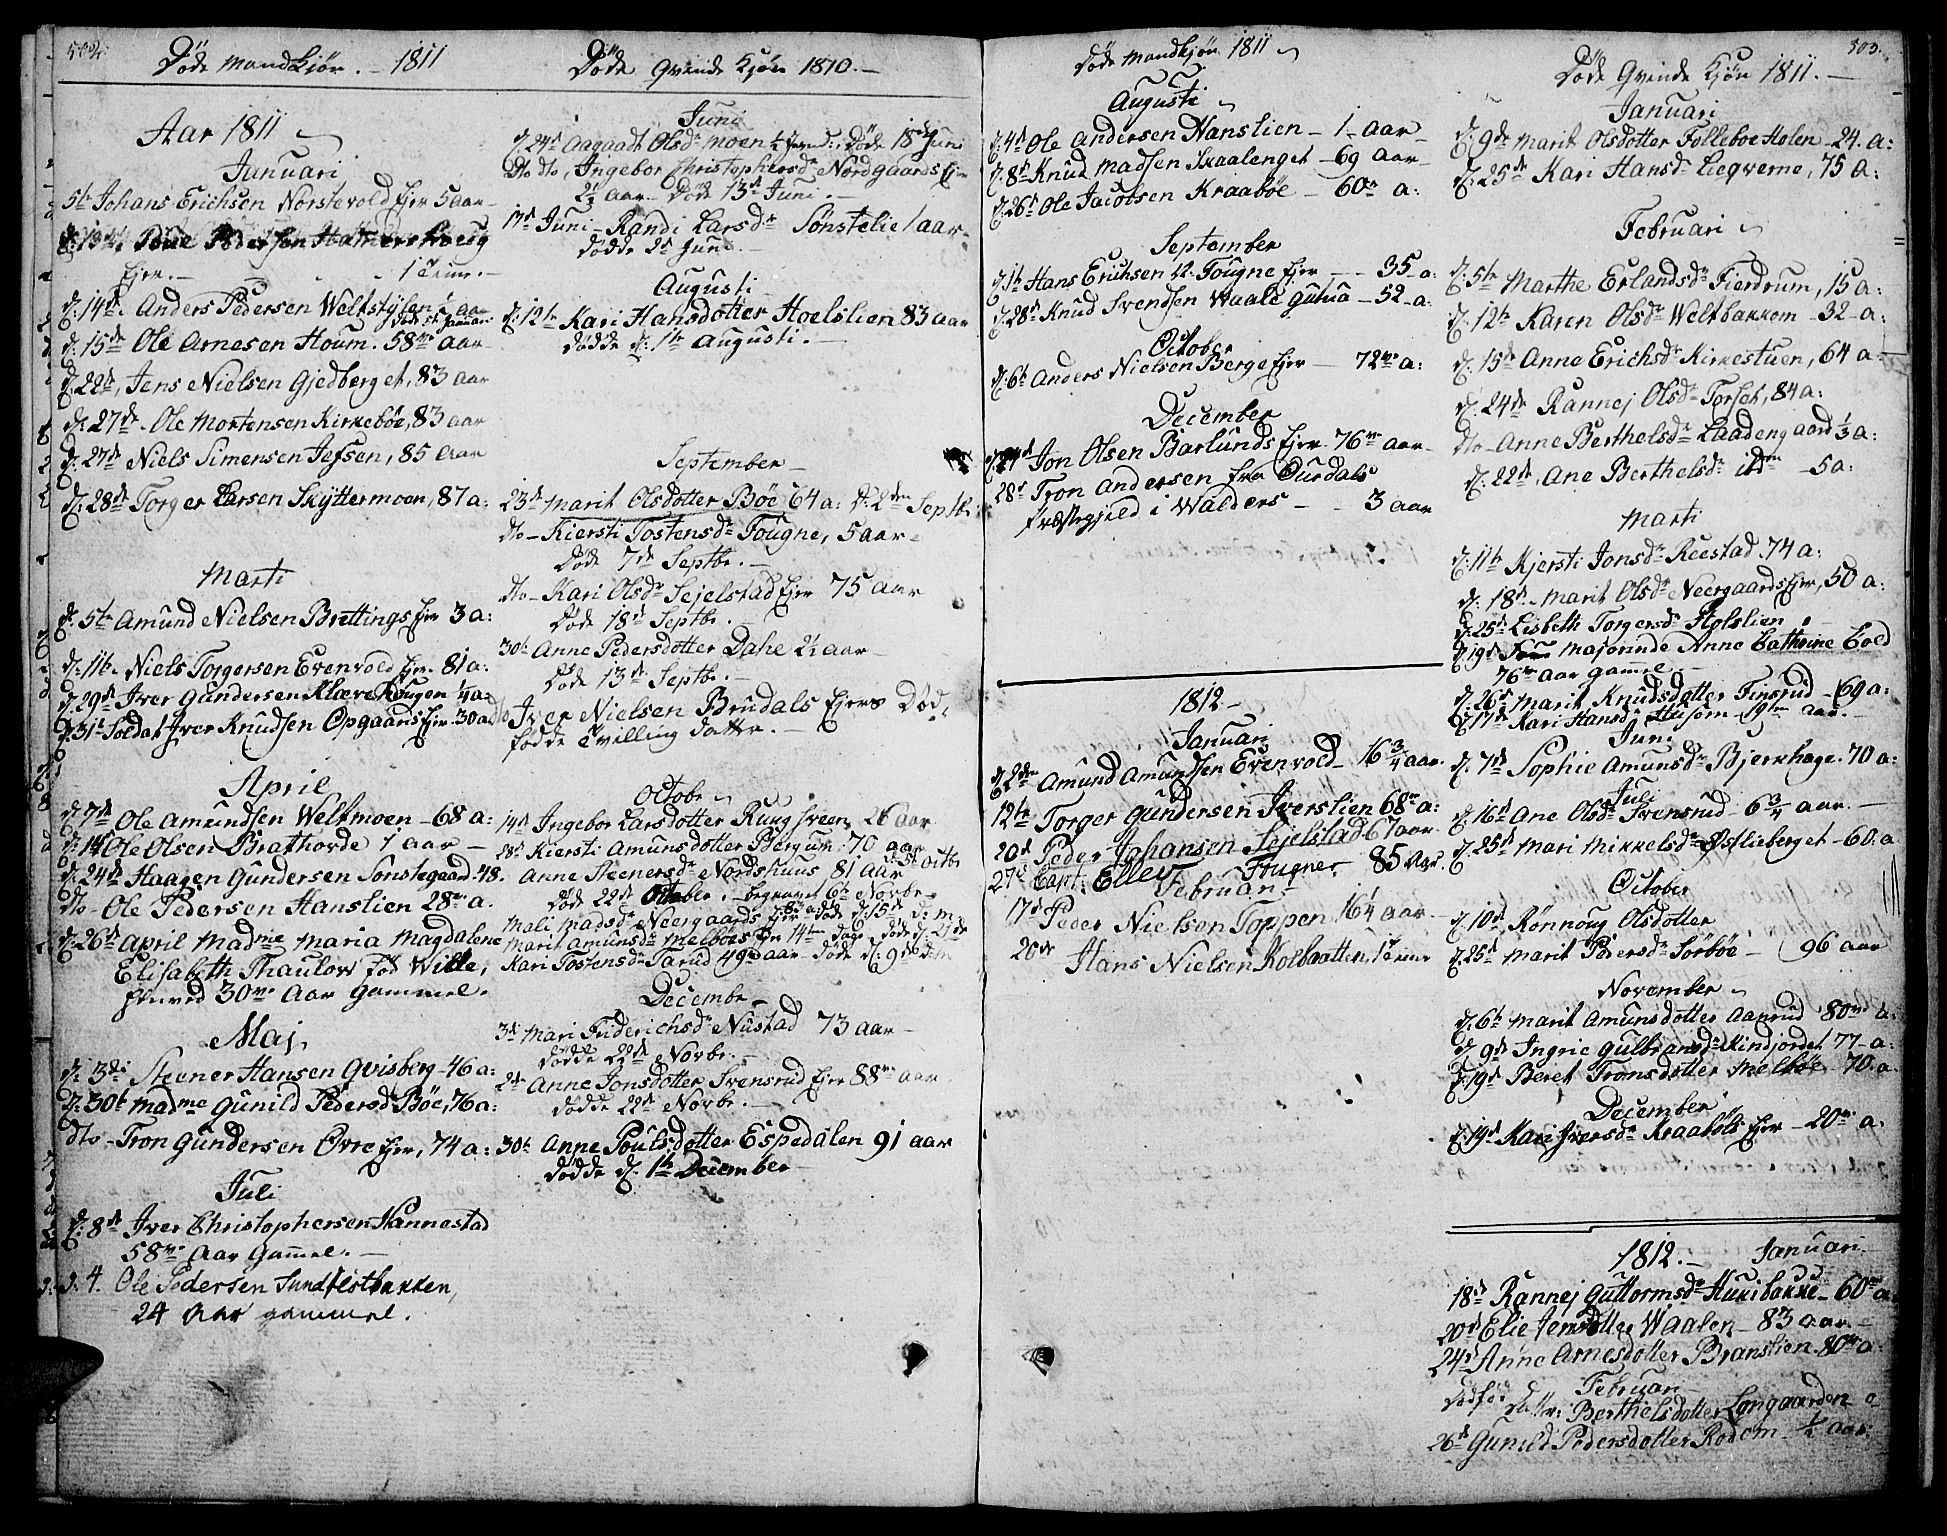 502.
Döde Mandkjön. - 1811
Aar 1811
Januari
5te Johans Erichsen Norstevold Ejer 5 aar
d: 13de Poul Pedersen
Ejer. - 1 Time. -
d: 14de. Anders Pedersen Weltstyen 1/2 aar
Döde 5te Januari
d: 15de Ole Arnesen Houm. 58ve aar
d: 22de, Jens Nielsen Gjedberget, 83 aar
d: 27de. Ole Mortensen Kirkeböe, 83 aar
d: 27de Niels Simensen Jefsen, 85 aar
d: 28de Torger Larsen Skyttermoen, 87 a:
Marti
d: 5te Amund Nielsen Brettings Ejer 3 a:
d: 11te. Niels Torgersen Evenvold Ejer. 81 a:
d: 29de Iver Gundersen Klæve Hougen 1/4 a:
d: 31te Soldat Iver Knudsen Opgaards Ejer. 30 a:
April
d: 7de Ole Amundsen Weltmoen - 68 a:
d: 14de Ole Olsen Brathorde 1 aar -
d: 24de Haagen Gundersen Sönstegaard. 48.
dto - Ole Pedersen Hanslien 28ve a.
d: 26de April Madme Maria Magdalene
Elisabeth Thaulow föd Wille,
henved 30ve Aar gammel.
Maj
d: 3die Steener Hansen Qvisberg - 46 a:
d: 30te Madme Gunild Pedersdr Böe, 76 a:
dto - Tron Gundersen Övre Ejer, 74 a:
Juli
d: 8de Iver Christophersen Nannestad
58ve Aar Gammel. -
d: 4. Ole Pedersen Sundfestbakken,
24 Aar gammel.
Döde Qvinde Kjön 1810. -
Juni
d: 24de Aagaadt Olsdr Moen 1/2 Döde 18de Juni
Dto dto, Ingebor Christophersdr Nordgaards Ejer
2 1/2 aar Döde 13de Juni. -
17de Juni - Randi Larsdr Sönstelie 1 aar
Dödde 2de Juni. -
Augusti
d: 12te Kari Hansdotter Hoelslien 83 aar
Dödde d: 1te Augusti. -
September
23de Marit Olsdotter Böe 64 a: d: 2den Septbr:
dto - Kiersti Tostensdr Fougne, 5 aar -
Döde 7de Septbr. -
dto - Kari Olsdr Sejelstad Ejer 75 aar
Döde 18de Septbr.
30te Anne Pedersdotter Dahe 2 1/2 aar -
Döde 13de Septbr. -
dto Iver Nielsen Brudals Ejers Död-
födde Tvilling datter. -
Octobr
14de Ingebor Larsdotter Rung sveen 26 aar
28de Kiersti Amunsdotter Bergum. 70 aar
5te Octbr
Anne Steenersdr Nordshuus 81 aar
Döde 22de October. - begravet 6te Novbr -
Mali Madsdr Neergaards Ejer 83 aar Döde d: 15de d: M.
Marit Amunsdr Melböes Ejer 14ten dage Döde d: 21de
Kari Tostensdr Sarud 49de aar - Döde d: 9de d: M
Decembr
3de Mari Friderichsdr Nustad 73 aar -
Dödde 22de Novbr. -
2de Anne Jonsdotter Svensrud Ejer 88ve aar
Dödde 22de Novbr. -
30te Anne Poulsdotter Espedalen 91 aar
Dödde d: 1te December -
Döde Mandkjön 1811
Augusti
d: 4de Ole Andersen Nanslien - 1 - aar
d: 8de Knud Madsen Skaalenget - 69 aar
d: 26de Ole Jacobsen Kraaböe - 60ve a:
September
d: 1te Hans Erichsen N. Fougne Ejer - - 35 a:
d: 28de Knud Svendsen Waale - 52 - a:
October
d: 6te Anders Nielsen Berge Ejer - 72ve a:
December
d: 27de Jon Olsen Barlunds Ejer. 76ve aar
28de Tron Andersen fra Ourdals
Præstegjeld i Walders - - 3 aar
1812 -
Januari
d: 2den Amund Amundsen Evenvold - 16 3/4 aar.
12te Torger Gundersen Iverslien 68ve a:
20de Peder Johansen Sejelstad 67 aar
27de Capt: Eller Fougner 85 aar
Februari
17de Peder Nielsen Toppen 16 1/2 aar
26de Hans Nielsen Kolbaatten, 1 Time
503.
Döde Qvinde Kjön 1811. -
Januari
d: 9de Marit Olsdotter Folleboe Holen - 24. a:
d: 25de Kari Hansdr Liegverne, 75 a:
Februari
d: 5te Marthe Erlandsdr Fierdrum, 15 a:
d: 12te Karen Olsdr Weltbakkom - 32 - a:
d: 15de Anne Erichsdr Kirkestuen, 64 a:
d: 24de Rannej Olsdr Torset, 84 a:
dto - Anne Berthelsdr Laadengaard 1/3 a:
d: 22de Ane Berthelsdr ibdm - 5 a:
Marti
d: 11te Kjersti Jonsdr Reestad 74 a:
d: 18de Marit Olsdr Neergaards Ejer, 50 a:
d: 25de Lisbeth Torgersdr Holslien
d: 19de Majorinde Anne Cathrine Cold
76ve Aar gammel. -
d: 26de Marit Knudsdotter Finsrud - 69 a:
d: 17de Kari Hansdr Husom - 19ten aar. -
Juni
d: 7de Sophie Amunsdr Bjerkhage. 70 a:
Juli
d: 16de Ane Olsdr Svensrud - 6 3/4 aar. -
d: 25de Mari Mikkelsdr Östlieberget - 60. a
October
d: 10de Rönnoug Olsdotter
d: 25de Marit Pedersdr Sörböe - 96 aar
November
d: 6te Marit Amunsdotter Aanrud 80ve a:
d: 9de Ingrie Gulbransdr Kindjordet 77 - a:
d: 19de Beret Tronsdotter Melböe 70. a.
December
d: 19de Kari Iversdr Kraaböls Ejer - 20ve a:
1812. - Januari.
18de Rannej Guttormsdr Husebakke - 60ve a:
20de Elie Jensdotter Waalen - 83 aar. -
24de Anne Arnesdotter Branslien. 80ve a:
Februari
Dödföd Datter: Berthelsdotter Longaarden
26de Gunild Pedersdotter Rodem - 1/2 aar: